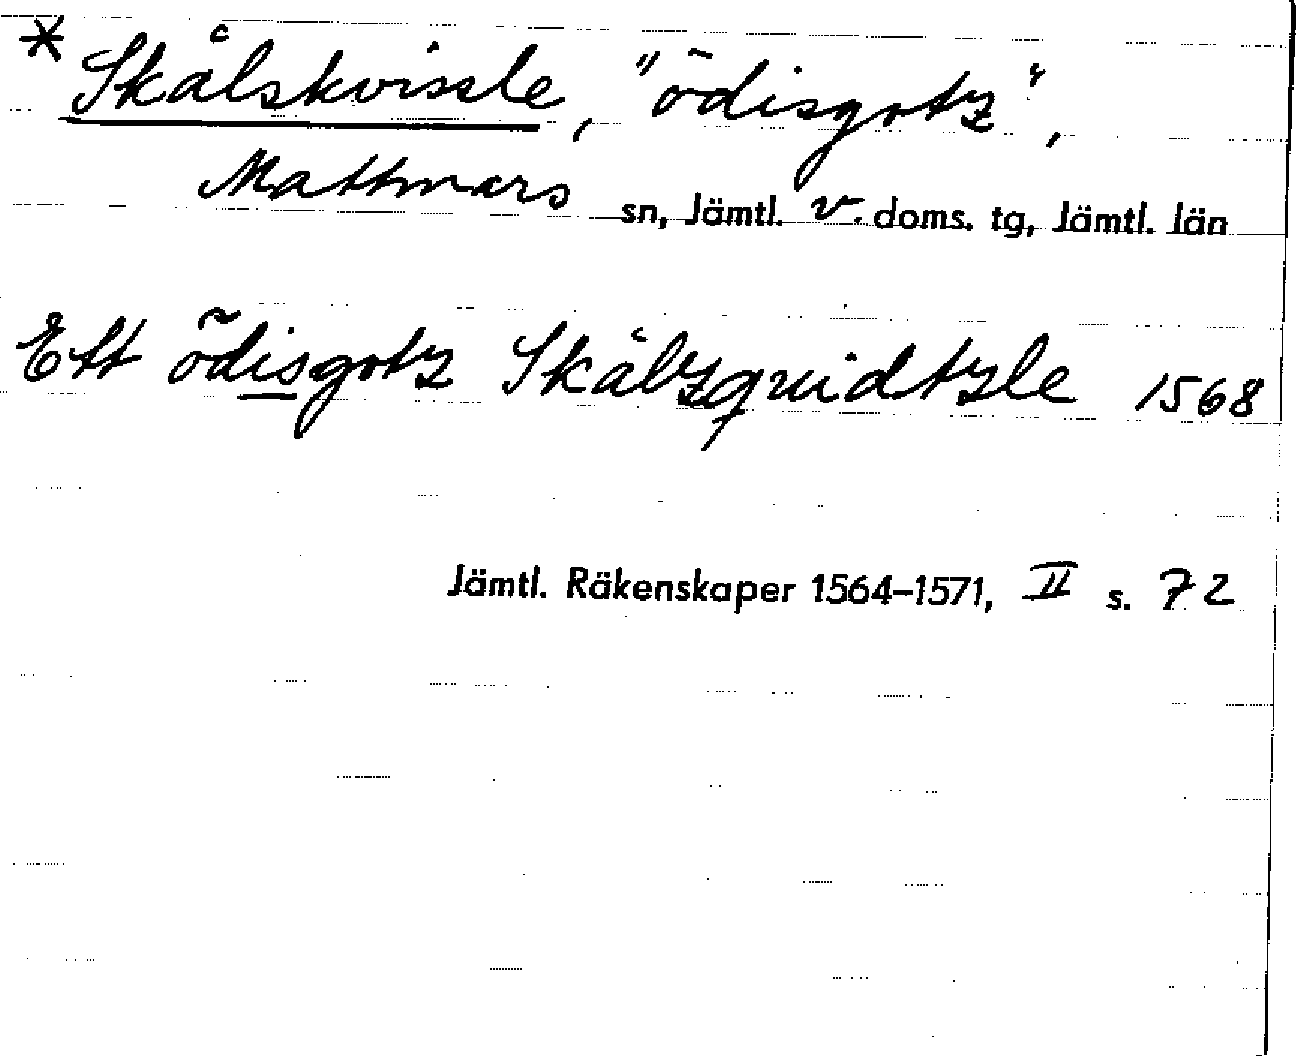 * Skålskvissle, "ödisgotz",
Mattmars sn, Jämtl. v. doms. tg, Jämtl. län
Ett ödisgotz Skålzquidtzle 1568
Jämtl. Räkenskaper 1564–1571, II s. 72